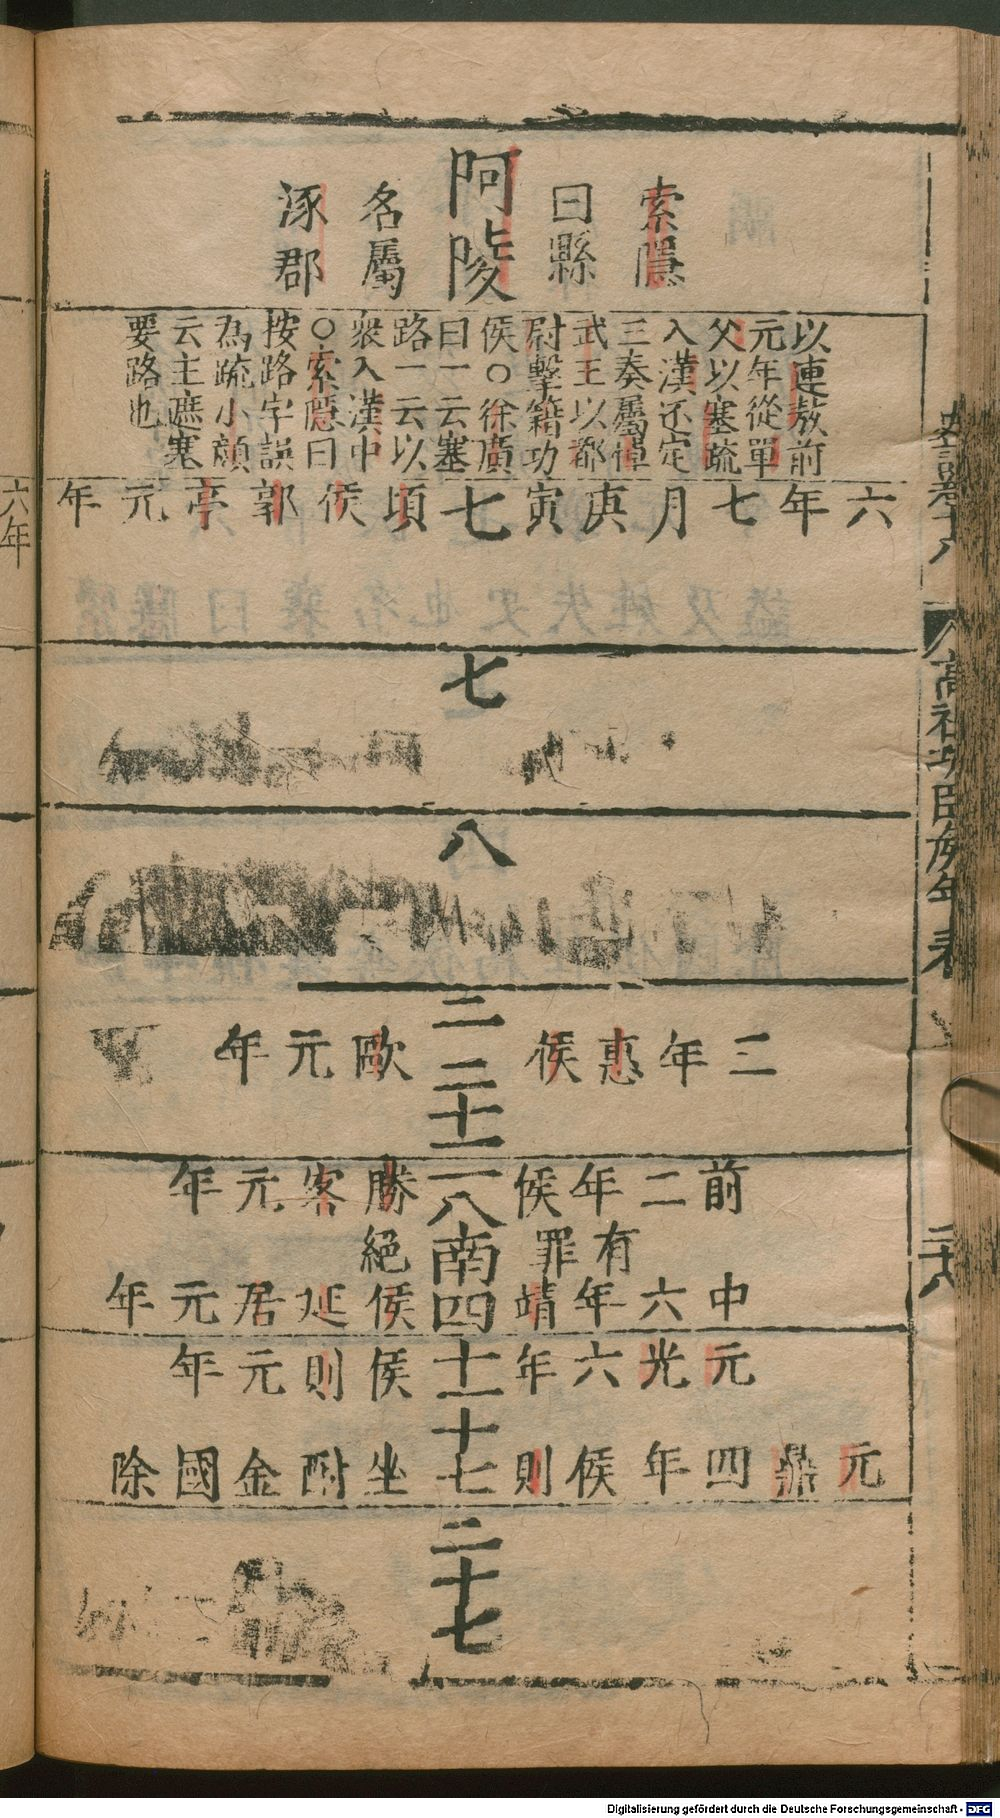 阿陵
索隱
曰縣
名屬
涿郡
以連敖前
元年從單
父以塞疏
入漢还定
三秦屬悼
武王以都
尉擊籍功
侯○徐廣
曰一云塞
路一云以
衆入漢中
○索隱曰
按路字誤
為疏小顔
云主遮塞
要路也
六年七月庚寅七頃侯郭亭元年
七
八
二
三年惠侯歐元年
二十一
前二年侯勝客元年
一八
有罪絕
南
中六年靖侯延居元年
四
元光六年侯則元年
十一
元鼎四年侯則坐酎金國除
十七
二十七
史記卷十八
高祖功臣侯年表
二十八
六年
Digitalisierung gefördert durch die Deutsche Forschungsgemeinschaft - DFG